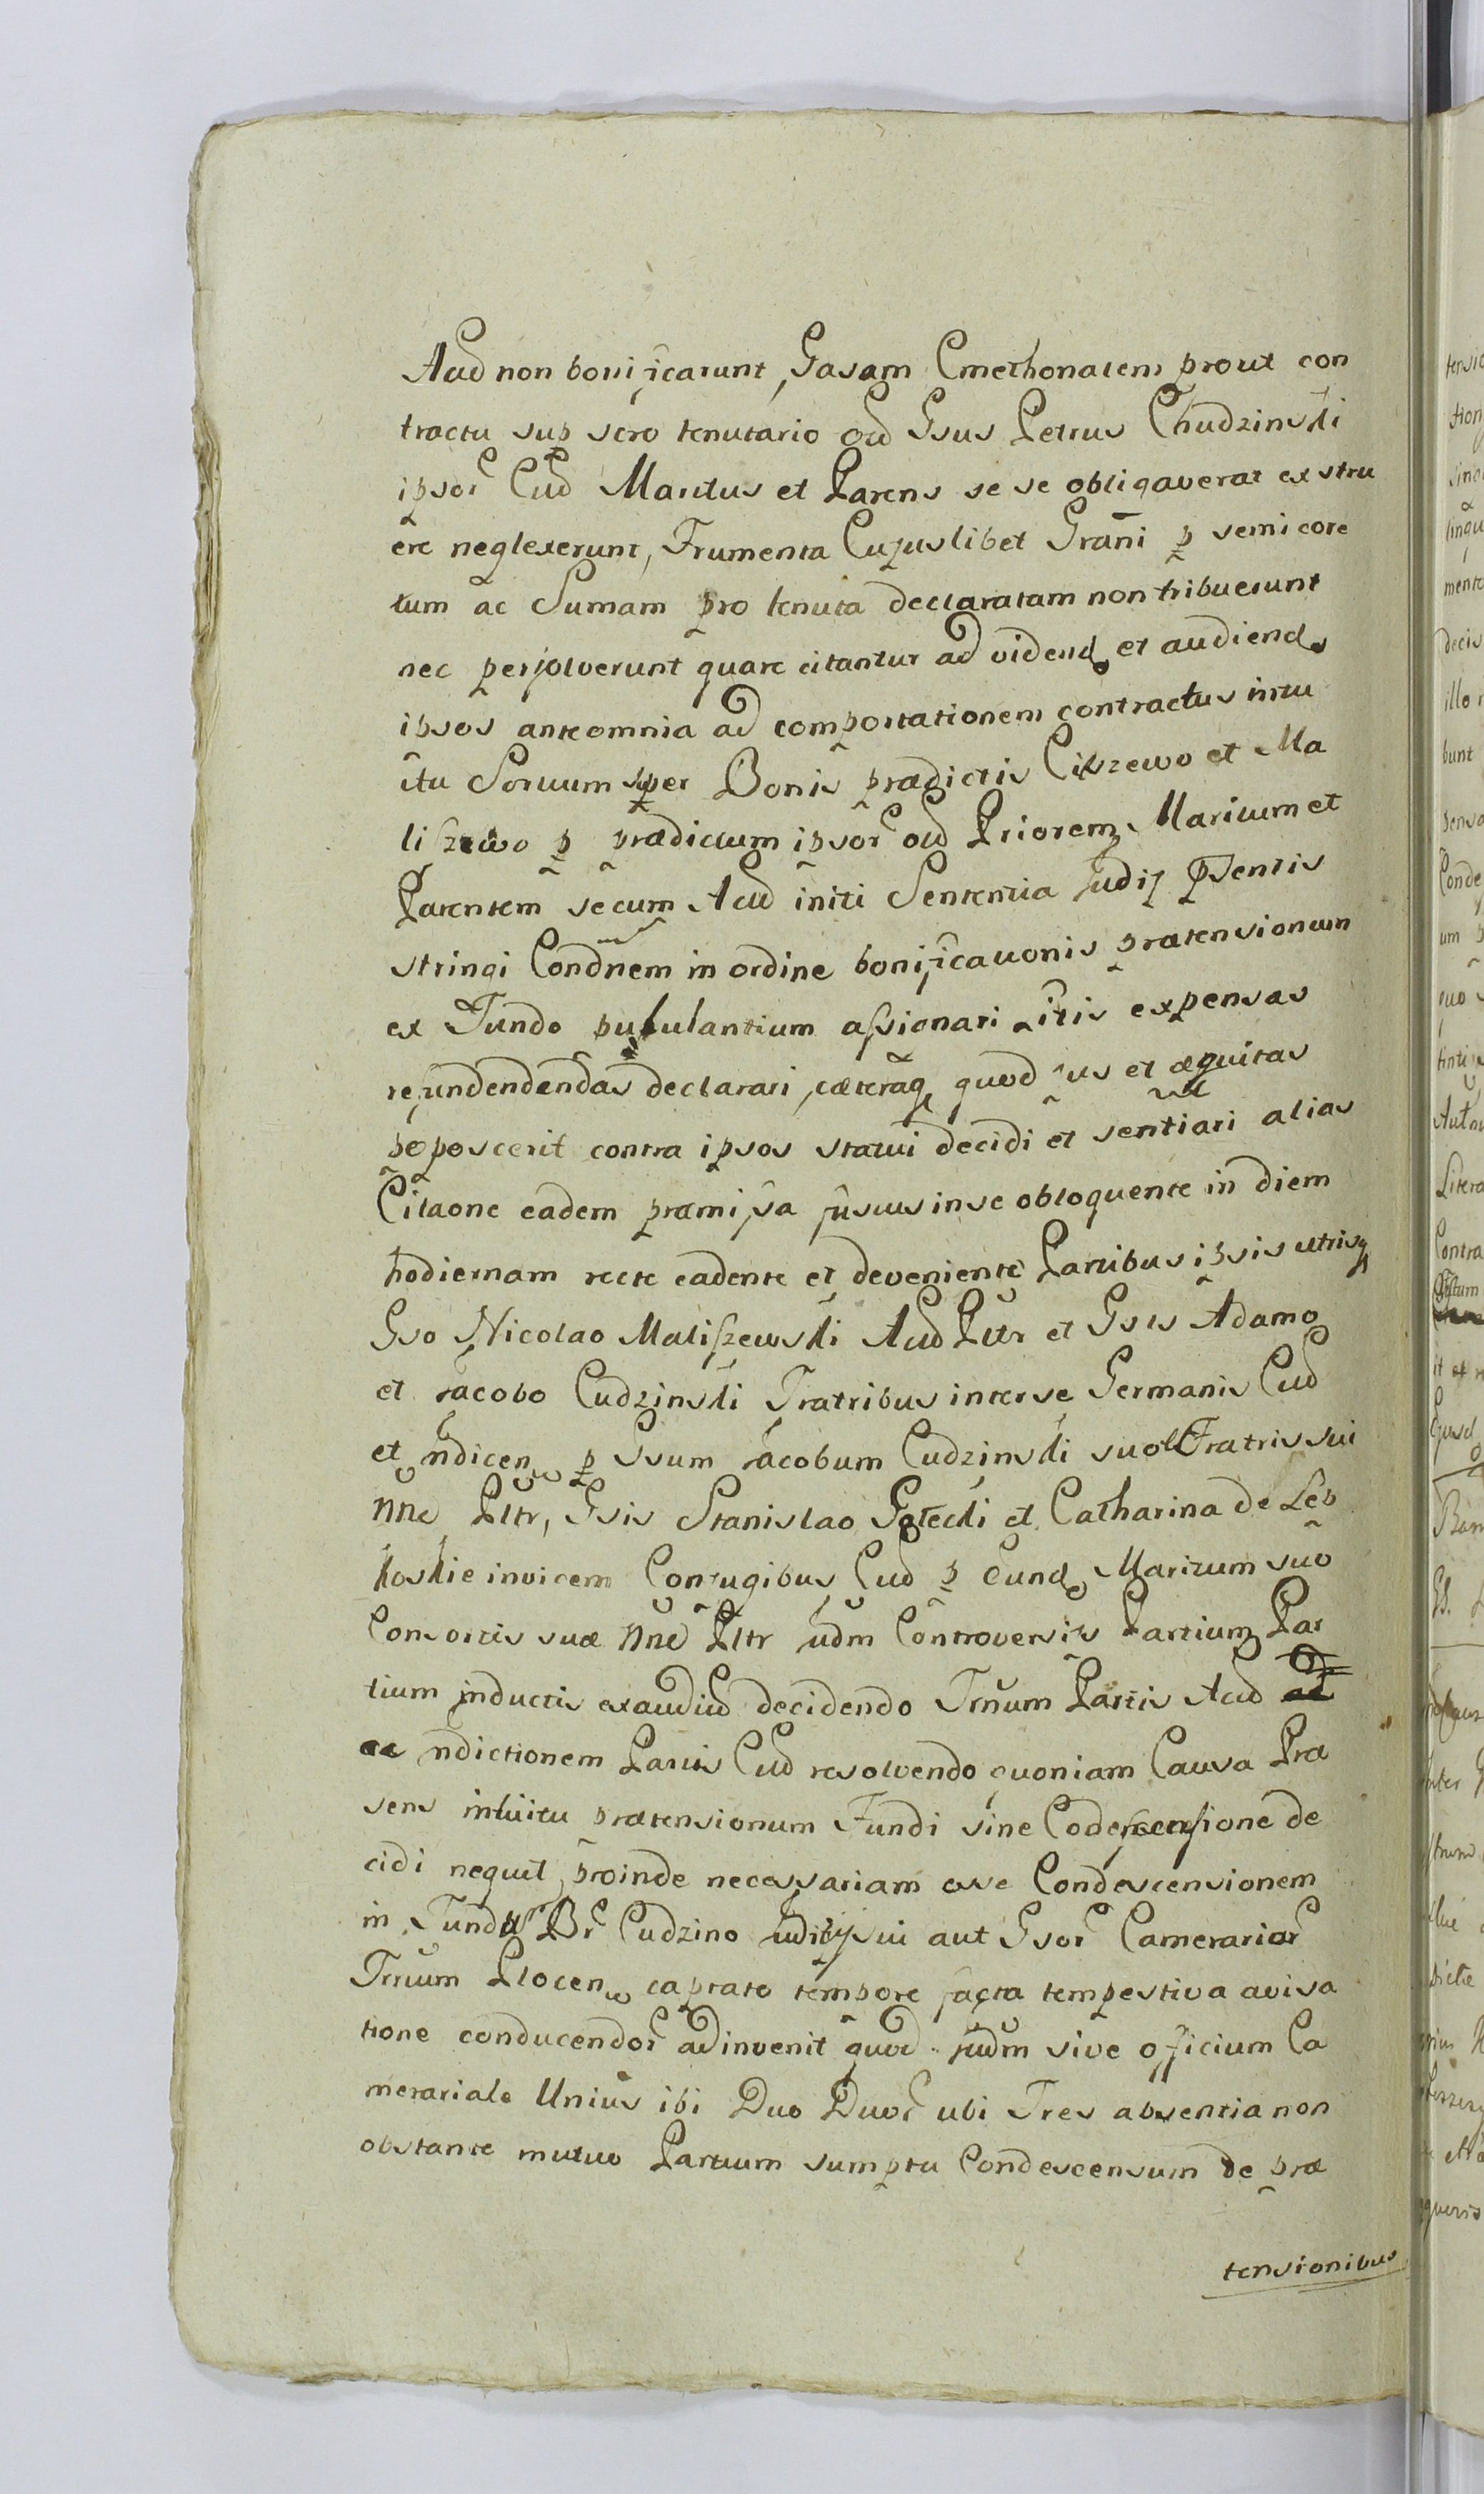 Acttd non bonificarunt, Casam Cmethonalem prout con
tractu sup scro tenutario old Gsus Petrus Chudzinski
ipsor Cttd Maritus et Parens se se obligaverat exstru
ere neglexerunt, Frumenta Cujuslibet Grani p semi core
tum ac Sumam pro tenuta declaratam non tribuerunt
nec persolverunt quare citantur ad vidend et audiend
ipsos ante omnia ad comportationem contractus intu
itu Sortium super Bonis prædictis Ciszewo et Ma
liszewo p prædictum ipsor old Priorem Maritum et
Parentem secum Acttd initi Sententia Judij Psentis
stringi Condnem in ordine bonificationis prætensionum
ex Fundo pulutantium assignari litis expensas
refundendendas declarari, cæteraq quod jus et æquitas
poposcerit contra ipsos statui decidi et sentiari alias
Citaone eadem præmissa fusius in se obloquente in diem
hodiernam recte cadente et deveniente Partibus ipsis utrisq
Gso Nicolao Maliszewski Acttd Pltr et Gsis Adamo
et Jacobo Cudzinski Fratribus inter se Germanis Cttd
et ndicen p Gsum Jacobum Cudzinski suo et Fratris sui
nne Pltr, Gsis Stanislao Gotecki et Catharina de Lep
koskie invicem Conjugibus Cttd p Eund Maritum suo
Consortis suæ nne Pltr Judm Controversiis Partium Par
tium inductis exauditd decidendo Trnum Partis Acttd
ac ndictionem Partis Cttd resolvendo quoniam Causa Præ
sens intuitu prætensionum Fundi sine Codescensione de
cidi nequit, proinde necessariam esse Condescensionem
in Fundu Br Cudzino Juditysui aut Gsor Camerarior
Trrium Plocen captato tempore facta tempestiva avisa
tione conducendor adinvenit quod Judm sive officium Ca
merariale Unius ibi Duo Duor ubi Tres absentia non
obstante mutuo Partium sumptu Condescensum de præ
tensionibus